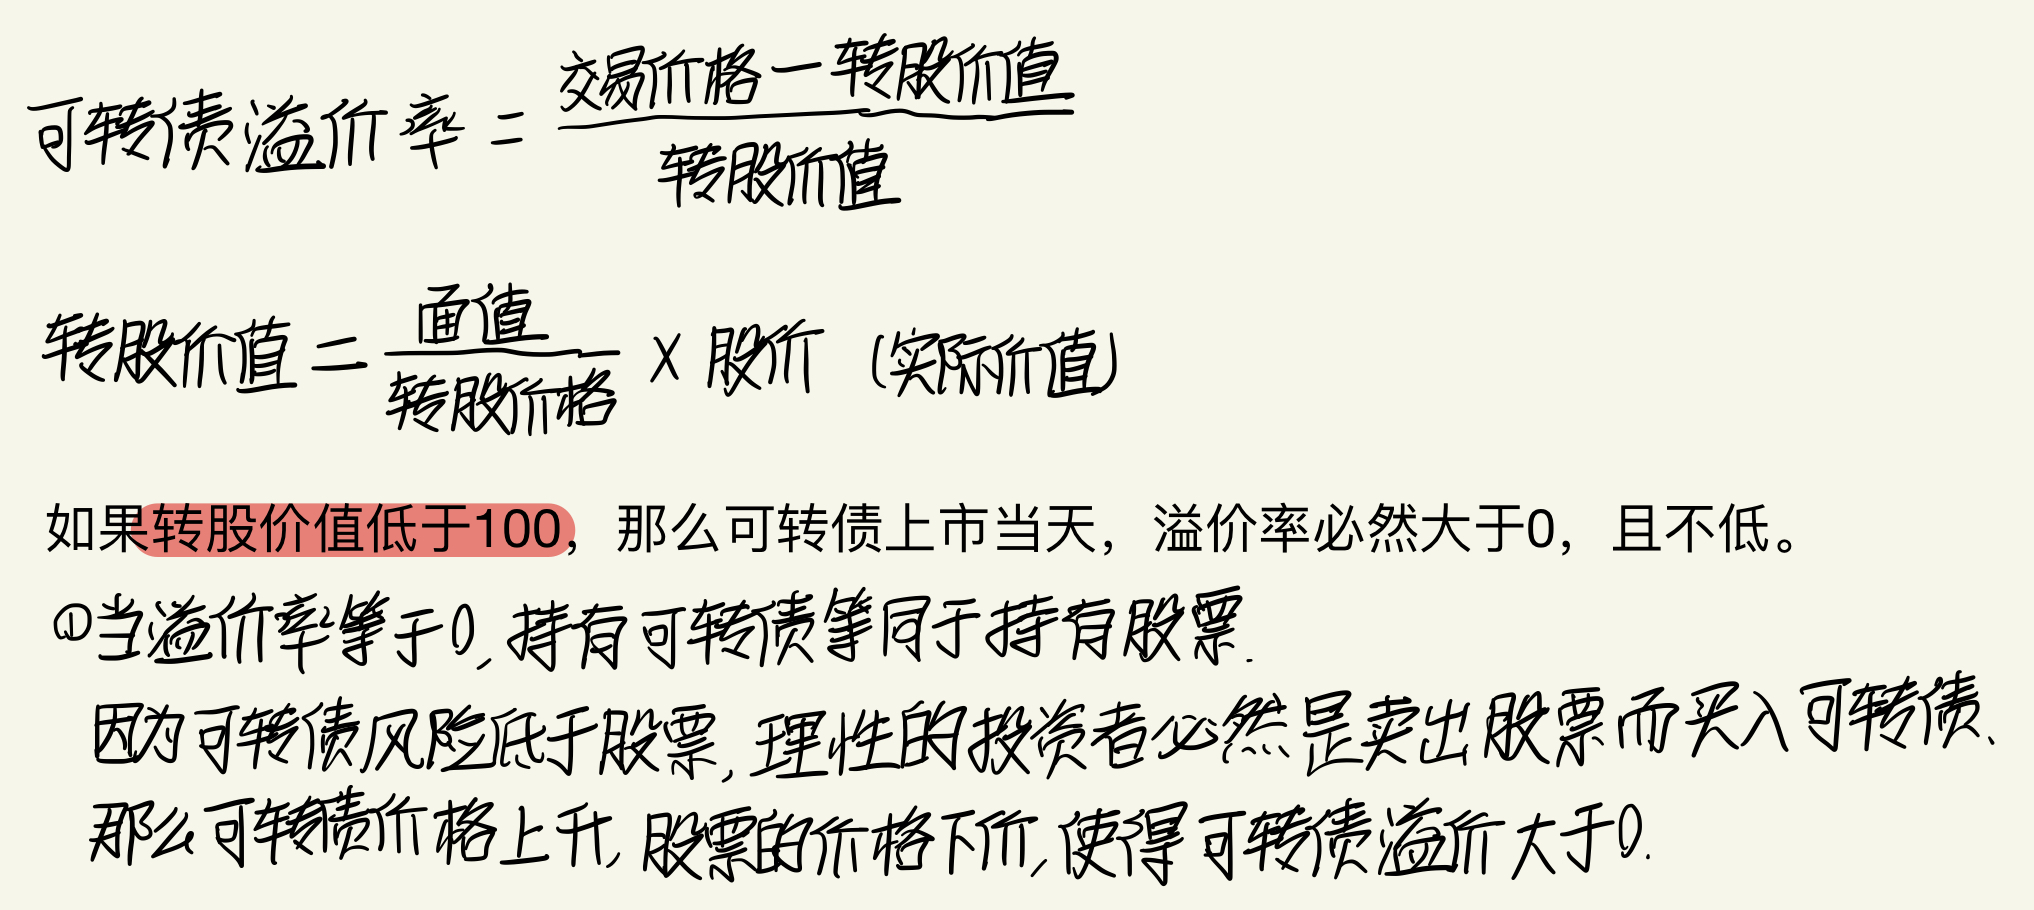 可转债溢价率 = (交易价格 - 转股价值) / 转股价值
转股价值 = 面值 / 转股价格 × 股价 (实际价值)
如果转股价值低于100，那么可转债上市当天，溢价率必然大于0，且不低。
①当溢价率等于0, 持有可转债等同于持有股票.
因为可转债风险低于股票, 理性的投资者必然是卖出股票而买入可转债、
那么可转债价格上升, 股票的价格下价, 使得可转债溢价大于0.